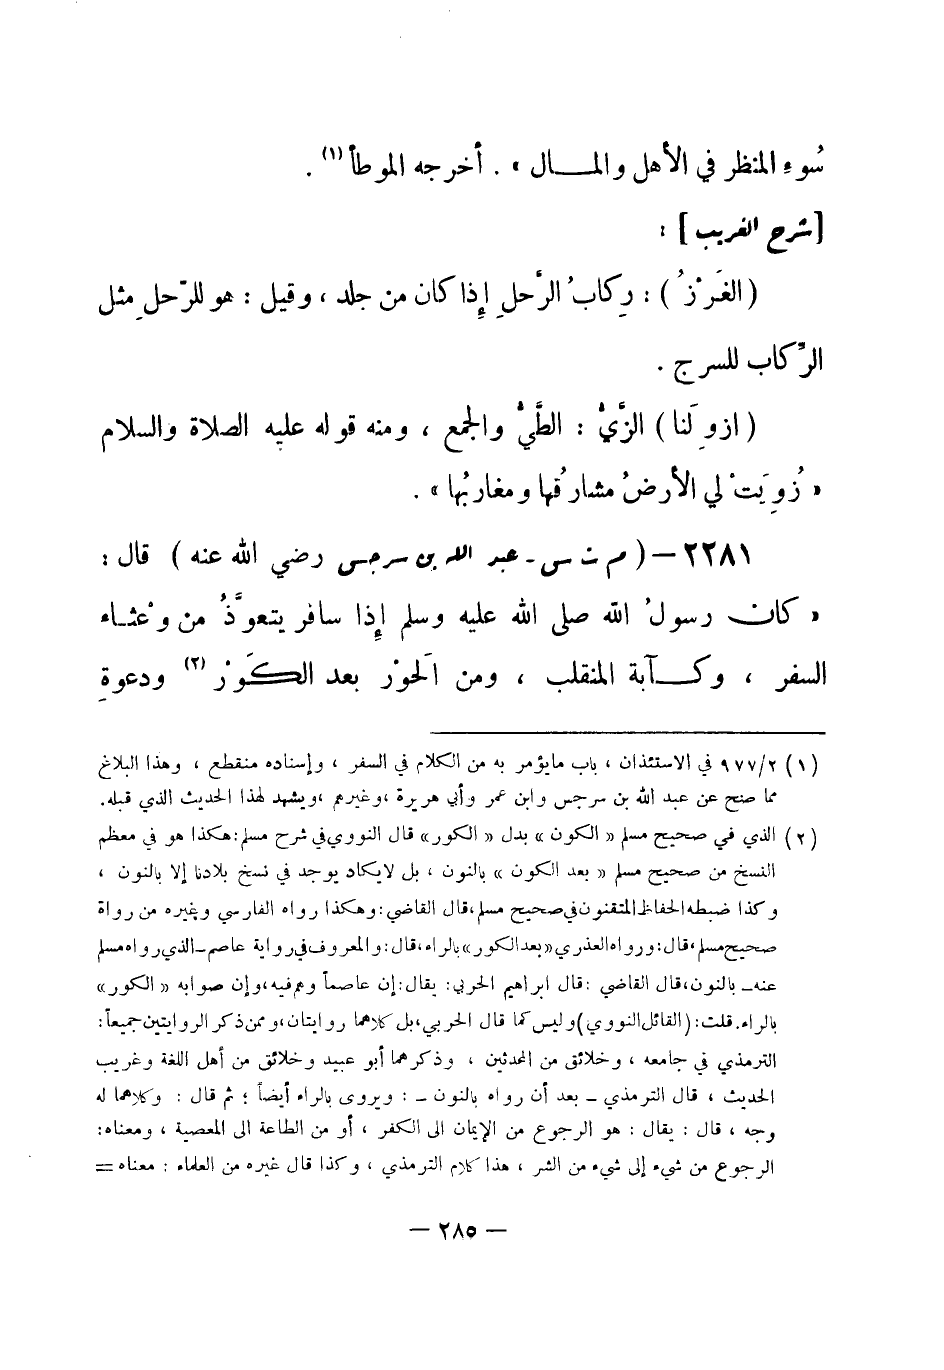 سُوءِ المنظر في الأهل والمـــال » . أخرجه الموطأ (١) .
[شرح الغريب] :
( الغَرْزُ ) : رِكابُ الرَّحلِ إِذا كان من جلد ، وقيل : هو للرّحلِ مثل
الرِّكاب للسرج .
( ازوِ لَنا ) الزَّيُّ : الطَّيُّ والجمع ، ومنه قوله عليه الصلاة والسلام
« زُوِيَتْ لي الأرضُ مشارقُها ومغاربُها » .
٢٢٨١ – ( م ت س - عبد الله بن سرجس رضي الله عنه ) قال :
« كان رسولُ الله صلى الله عليه وسلم إِذا سافر يتعوَّذُ من وعْثـاء
السفر ، وكــآبة المنقلب ، ومن الحَوْر بعد الكَوْر (٢) ودعوةِ
(١) ٩٧٧/٢ في الاستئذان ، باب مايؤمر به من الكلام في السفر ، وإسناده منقطع ، وهذا البلاغ
مما صح عن عبد الله بن سرجس وابن عمر وأبي هريرة ،وغيرهم ،ويشهد لهذا الحديث الذي قبله.
(٢) الذي في صحيح مسلم « الكون » بدل « الكور» قال النووي في شرح مسلم:هكذا هو في معظم
النسخ من صحيح مسلم « بعد الكون » بالنون ، بل لايكاد يوجد في نسخ بلادنا إلا بالنون ،
وكذا ضبطه الحفاظ المتقنون في صحيح مسلم،قال القاضي:وهكذا رواه الفارسي وغيره من رواة
صحيح مسلم،قال:ورواه العذري«بعد الكور»بالراء،قال:والمعروف في رواية عاصم–الذي رواه مسلم
عنه– بالنون،قال القاضي :قال ابراهيم الحربي: يقال:إن عاصماً وهم فيه،وإن صوابه « الكور»
بالراء.قلت:(القائل النووي)وليس كما قال الحربي،بل كلاهما روايتان،وممن ذكر الروايتين جميعاً:
الترمذي في جامعه ، وخلائق من المحدثين ، وذكرهما أبو عبيد وخلائق من أهل اللغة وغريب
الحديث ، قال الترمذي – بعد أن رواه بالنون – : ويروى بالراء أيضاً ؛ ثم قال : وكلاهما له
وجه ، قال : يقال : هو الرجوع من الإيمان الى الكفر ، أو من الطاعة الى المعصية ، ومعناه:
الرجوع من شيء إلى شيء من الشر ، هذا كلام الترمذي ، وكذا قال غيره من العلماء : معناه =
– ٢٨٥ –